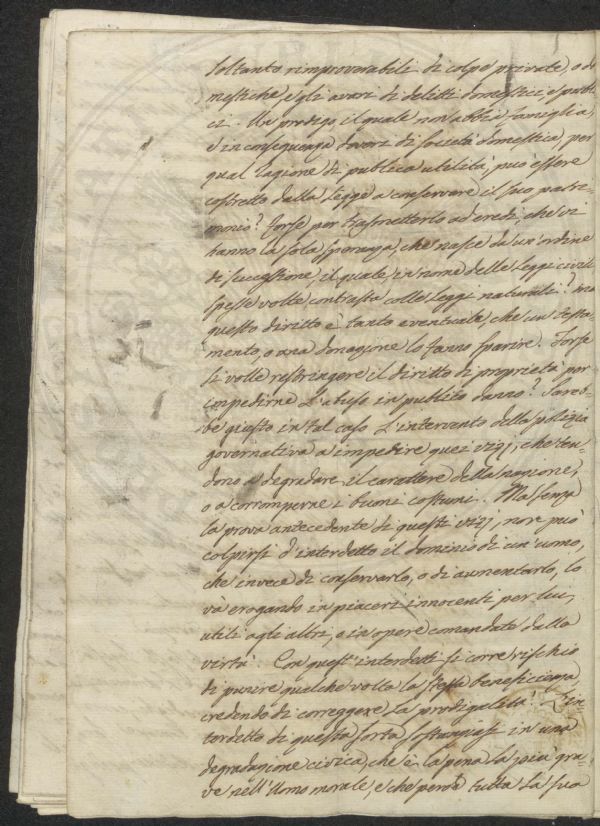 soltanto rimproverabili di colpe private, o do
mestiche, e gli avari di delitti domestici, e pubbli
ci. Un prodigo, il quale non abbia famiglia,
e in conseguenza doveri di società domestica, per
qual ragione di publica utilità, può essere
costretto dalla legge a conservare il suo patri-
monio? Forse per trasmetterlo ad eredi, che vi
hanno la sola speranza, che nasce da un'ordine
di successione, il quale, in nome delle leggi civili
spesse volte contrasta colle leggi naturali? ma
questo diritto è tanto eventuale, che un testa-
mento, o una donazione lo fanno sparire. Forse
si volle restringere il diritto di proprietà per
impedirne l'abuso in publico danno? Sareb-
be giusto in tal caso l'intervento della polizia
governativa a impedire quei vizj, che ten-
dono a degradare il carattere della nazione,
o a corromperne i buoni costumi. Ma senza
la prova antecedente di questi vizj, non può
colpirsi d'interdetto il dominio di un'uomo,
che invece di conservarlo, o di aumentarlo, lo
và erogando in piaceri innocenti per lui,
utili agli altri, o in opere comandate dalla
virtù. Con quest'interdetti si corre rischio
di punire qualche volta la stessa beneficienza,
credendo di correggere la prodigalità. L'in-
terdetto di questa sorta sostanziasi in una
degradazione civica, che è la pena la più gra-
ve nell'Uomo morale, e che perde tutta la sua